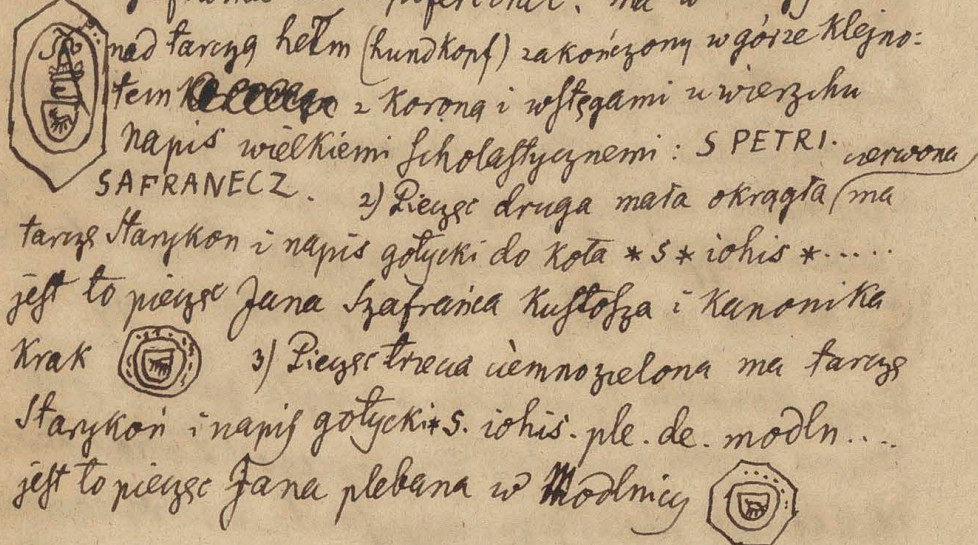 nad tarczą hełm (hundkopf) zakończony w górze klejno:
tem z koroną i wstęgami u wierzchu
napis wielkiemi scholastycznemi: S PETRI.
czerwona
SAFRANECZ. 2) Pieczęc druga mała okrągła ma
tarczę Starykon i napis gotycki do koła * s * iohis * .....
jest to pieczęc Jana Szafrańca Kustosza i Kanonika
Krak 3) Pieczęc trzecia ciemnozielona ma tarczę
Starykoń i napis gotycki * s. iohis. ple. de. modln....
jest to pieczęc Jana plebana w Modlnicy